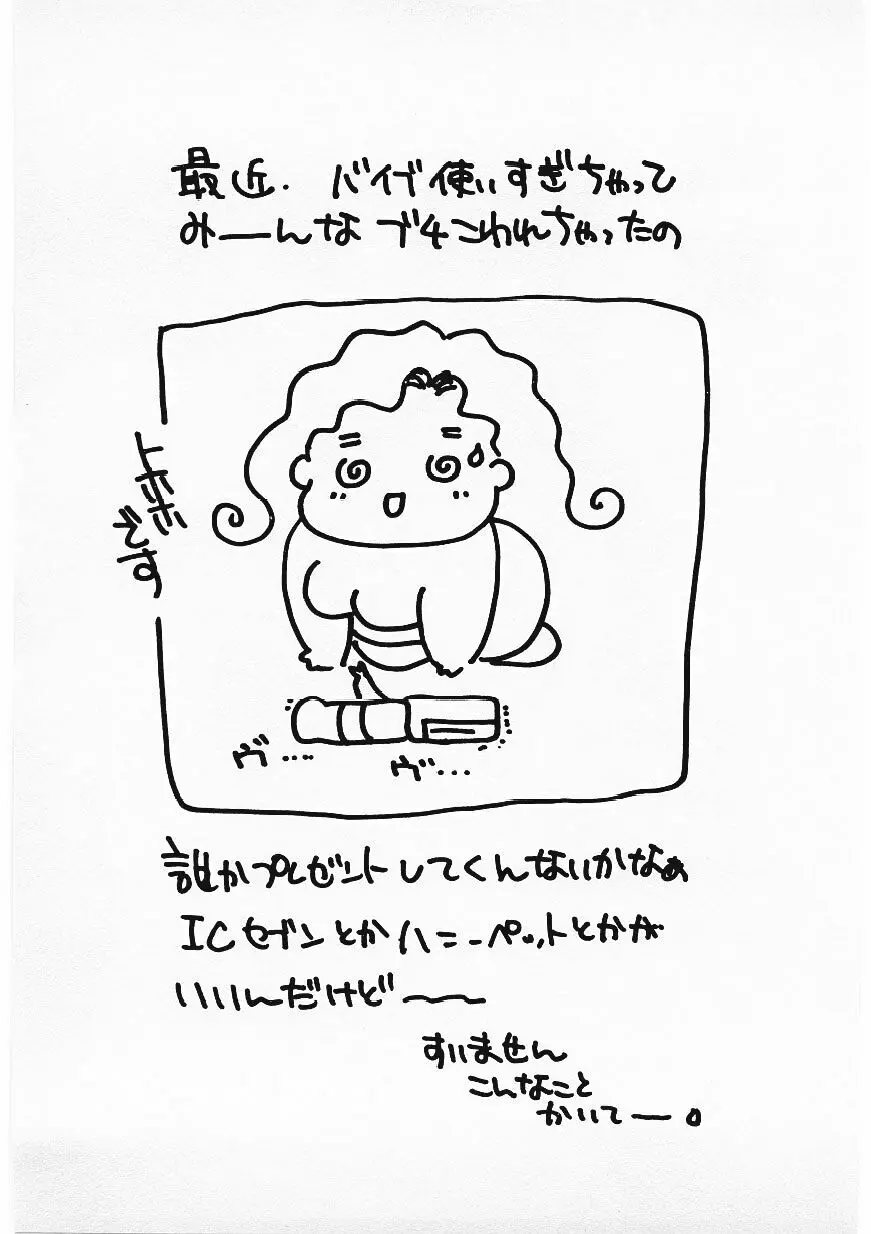 最近.バイブ使いすぎちゃって
み――んなブチこわれちゃったの
です
ヴ…
ヴ…
誰かプレゼントしてくんないかなぁ
ICセブンとかハニーペットとかが
いいんだけど〜〜
すいません
こんなこと
かいて―。